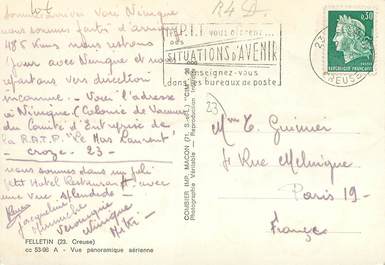 R4D.
P.T.T. vous offrent...
des
SITUATIONS D'AVENIR
Renseignez-vous
dans les bureaux de poste
0,30
REPUBLIQUE FRANCAISE
23
CREUSE
venir voir Ninique
nous sommes partis d'
485 Kms nous restons
jours avec Ninique et nous
repartons vers direction
inconnue. - Voici l'adresse
à Ninique (Colonie de Vacances
du Comité d'Entreprise de
la R.A.T.P. "Le Mas Laurent"
croze. 23 -
nous sommes dans un joli
petit Hotel Restaurant avec
une vue splendide
Jacqueline
Véronique
Ninique
23
COMBIER IMP. MACON (71 S.-et-L.) "CIM"
Photographie Véritable - Reproduction Interdite
Mme T. Guimier
Rue Melnigue
Paris 19-
France
FELLETIN (23. Creuse)
cc 53-95 A - Vue panoramique aérienne